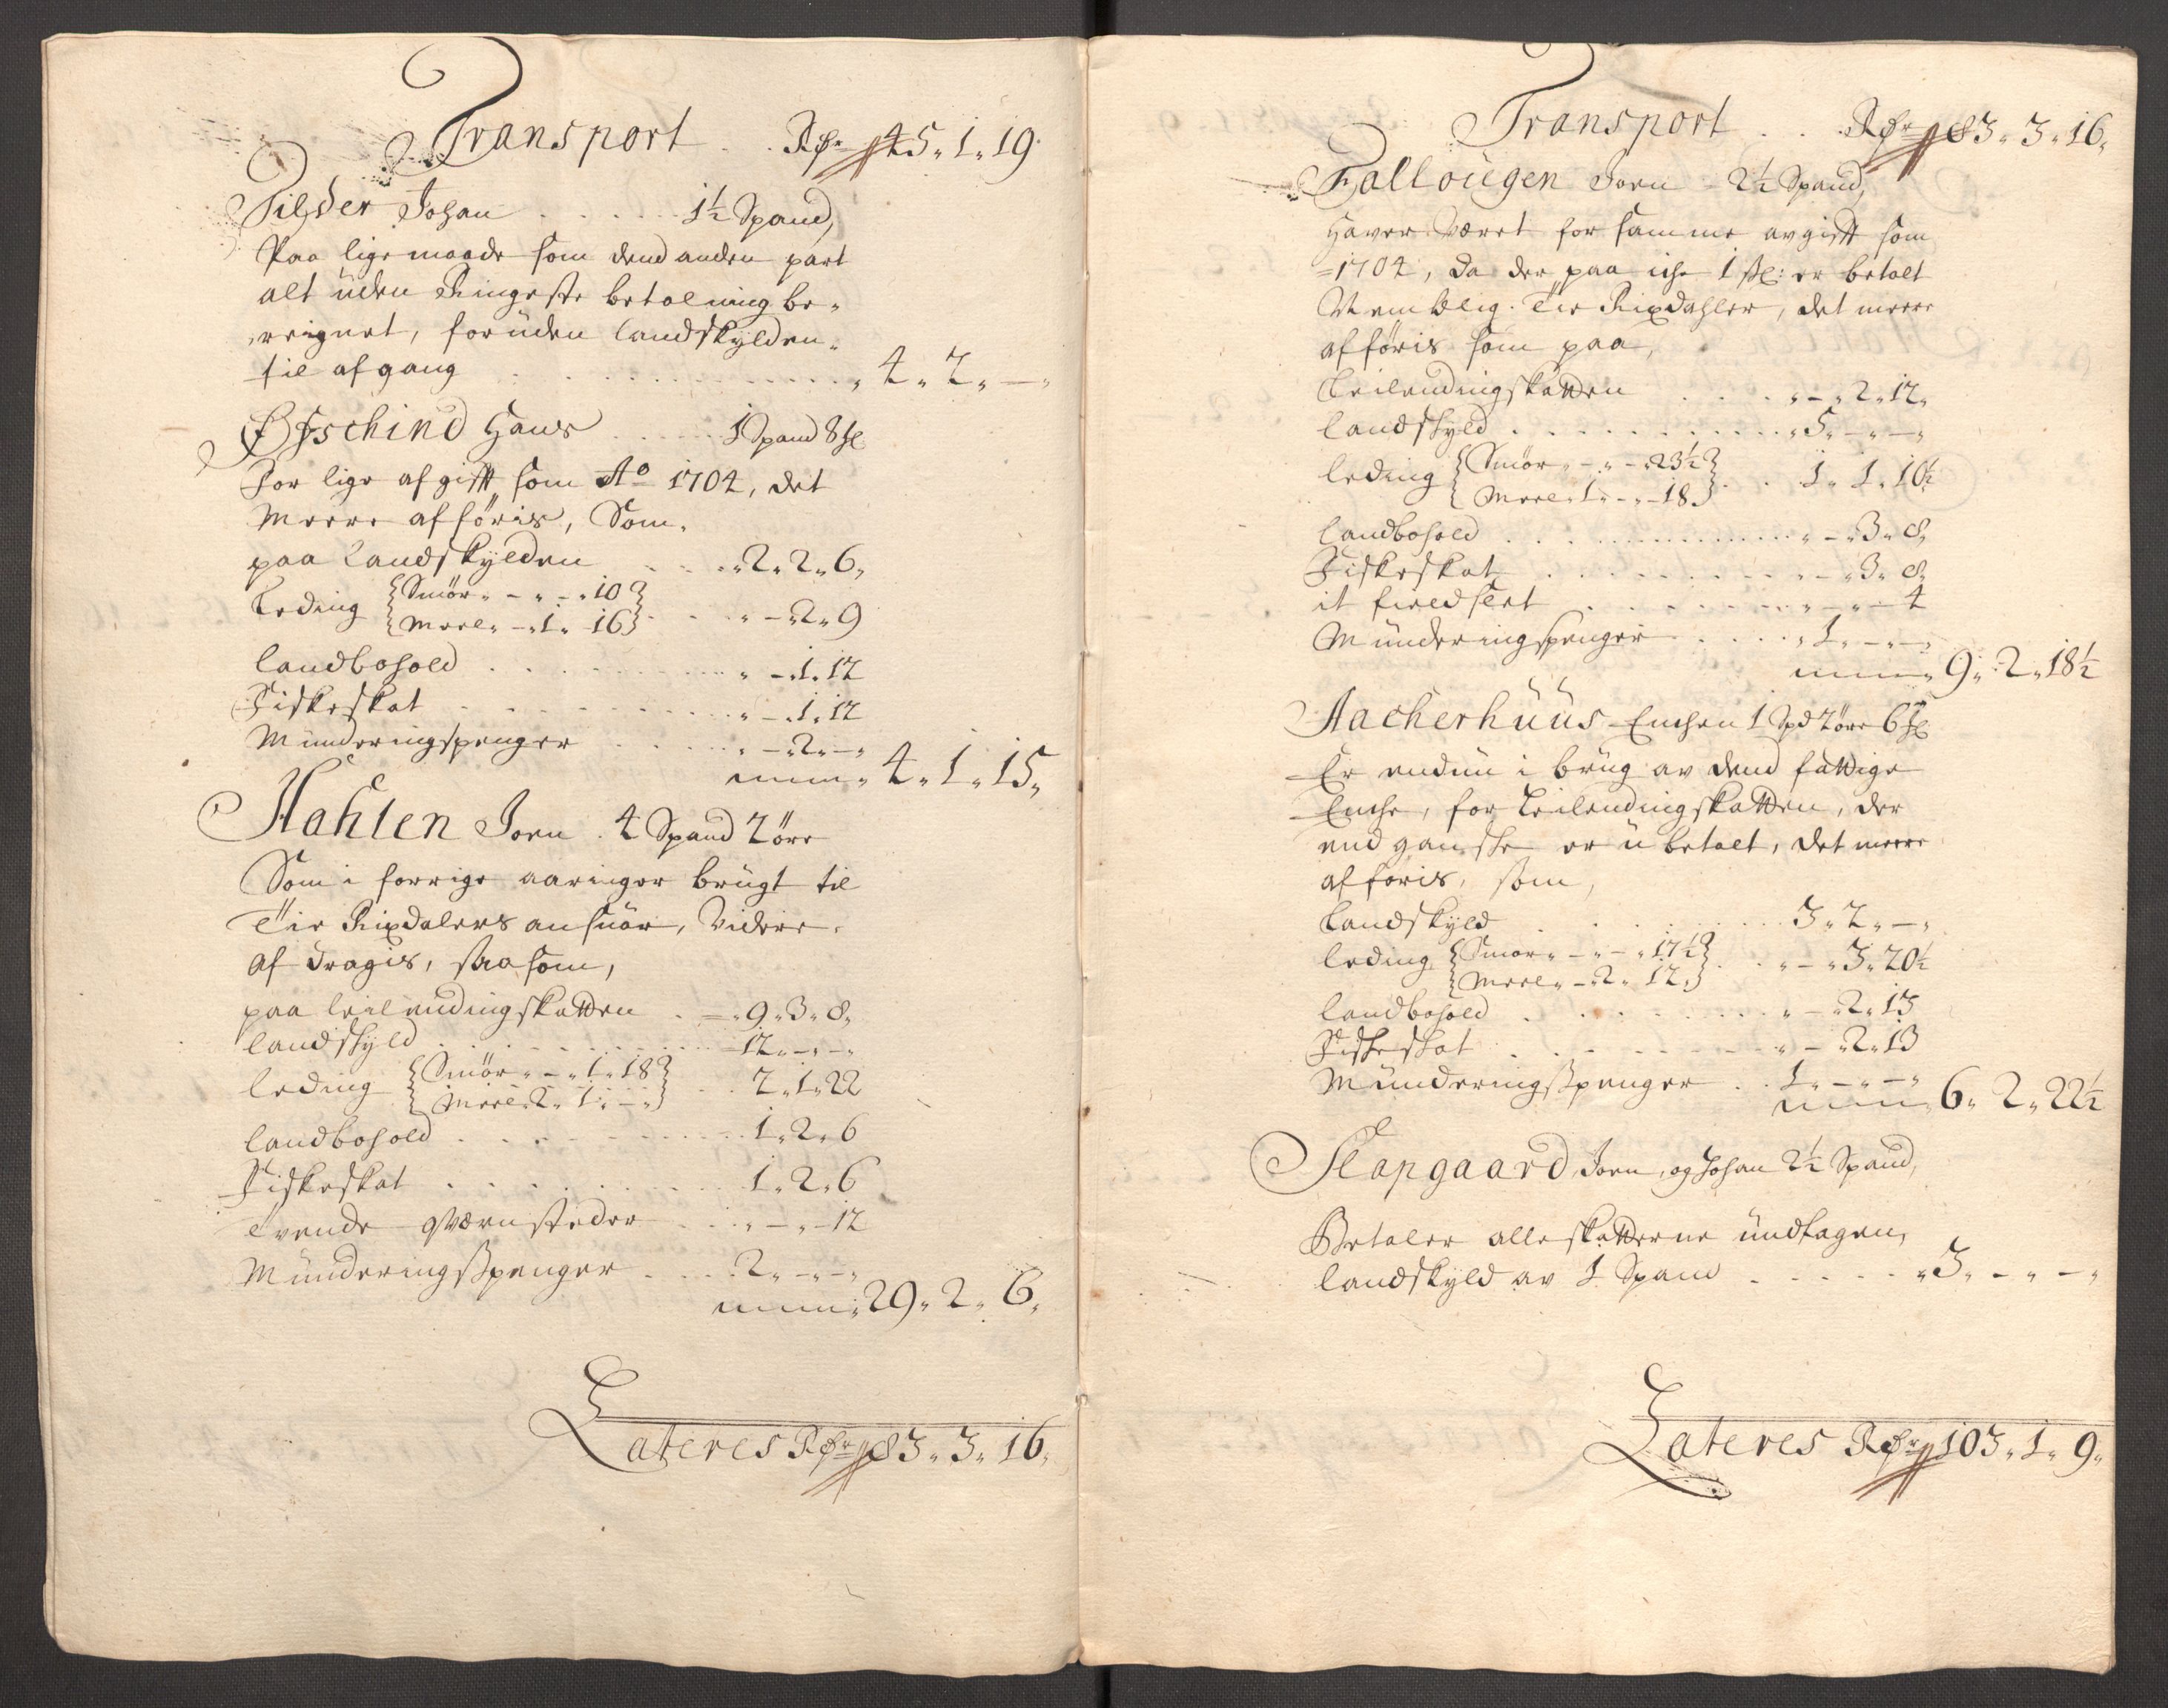 Transport . . Rdr 45„1„19.
Tilder Johan . . . . . 1½ Spand,
Paa lige maade som dend anden part
alt uden Ringeste betalning be-
reignet, foruden Landskylden„
til afgang . . . . . . „4„2„—„
Øyschind Hans . . . . 1 Spand 8
For lige afgifft som Ao 1704, det
Meere afføris, Som„
paa Landskylden . . . „2„2„6„
Leding {Smør„ – „ – „10} {Meel„ –„1„ 16} . . „ – „2„9
Landbohold . . . . . „ –„1„12
Fiskeskat . . . . . „ –„1„12
Munderingspenger . . . . „ –„2„–„
„4„1„15„
Hahlen Joen . 4 Spand 2 öre
Som i forrige aaringer brugt til
Tie Rixdalers ansuar, Videre
af dragis, saasom,
paa Leilendingskatten . – „9„3„8„
Landskyld . . . . . 12„–„–„
Leding {Smør„ – „1„18} {Meel„2„ 1„–„} . . 2„1„22
Landbohold . . . . . 1„2„6
Fiskeskat . . . . . 1„2„6
Tvende qværnsteder . . . „ – „ –12
Munderingsspenger . . . 2„–„–„
„29„2„6„
Lateres Rdr 83„3„16„
Transport . . Rdr 83„3„16„
Fallougen Joen – 2½ Spand,
Haver været for samme avgifft som
1704, da der paa iche 1 sk: er betalt
Nemblig Tie Rixdahler, det meere
afføris som paa,
Leilendingskatten . . . . „–„2„12„
Landskyld . . . . . „5„–„–„
Leding {Smør„ – „ – „23½} {Meel„1„–„18} . . 1„1„10½
Landbohold . . . . . „ –„3„8„
Fiskeskat . . . . . „ –„3„8„
it . . . . . „–„–4
Munderingspenger . . . . „1„–„–„
„9„2„18½
Aacherhuus Enchen 1 Spd 2 öre 6
Er endnu i brug av dend fattige
Enche, for Leilendingskatten, der
end ganske er ubetalt, det meere
afføris, som,
Landskyld . . . . . 3„2„–„
Leding {Smør„ – „ – „17½} {Meel„ –„2„ 12„} . . „–„3„20½
Landbohold . . . . . „ –„2„13
Fiskeskat . . . . . „ –„2„13
Munderingsspenger . . 1„–„–„
„6„2„22½
Slapgaard Joen, og Johan 2½ Spand,
Betaler alle skatterne undtagen,
Landskyld av 1 Spand . . . . . „3„ – „ – „
Lateres Rdr 103„1„9„